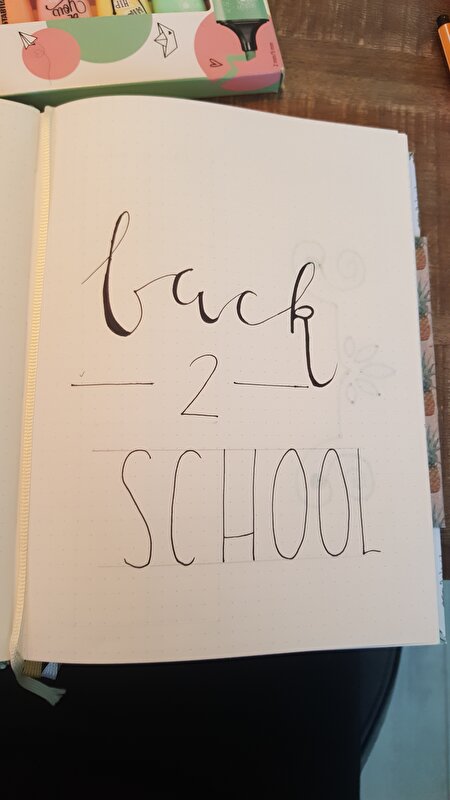 back
2
SCHOOL